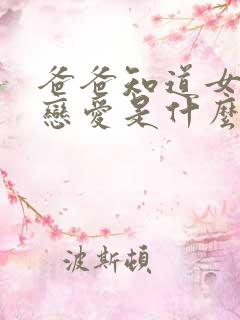 爸爸知道女
戀愛是什麼
波斯頓